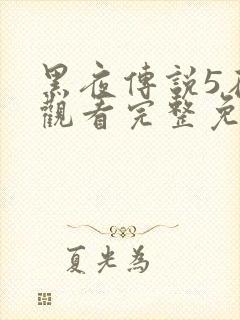 黑夜傳說5
觀看完整免
夏光為